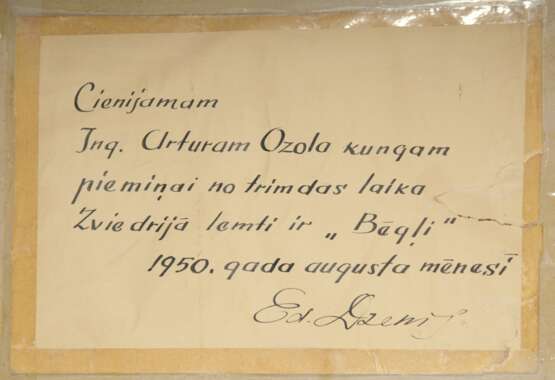 Cienijamam
Ing. Arturam Ozola kungam
piemiņai no trimdas laika
Zviedrijā lemti ir „Bēgļi“
1950. gada augusta mēnesī
Ed. Dzenis.